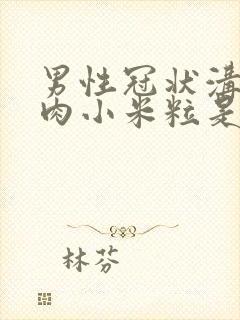 男性冠状溝
肉小米粒是
林芬